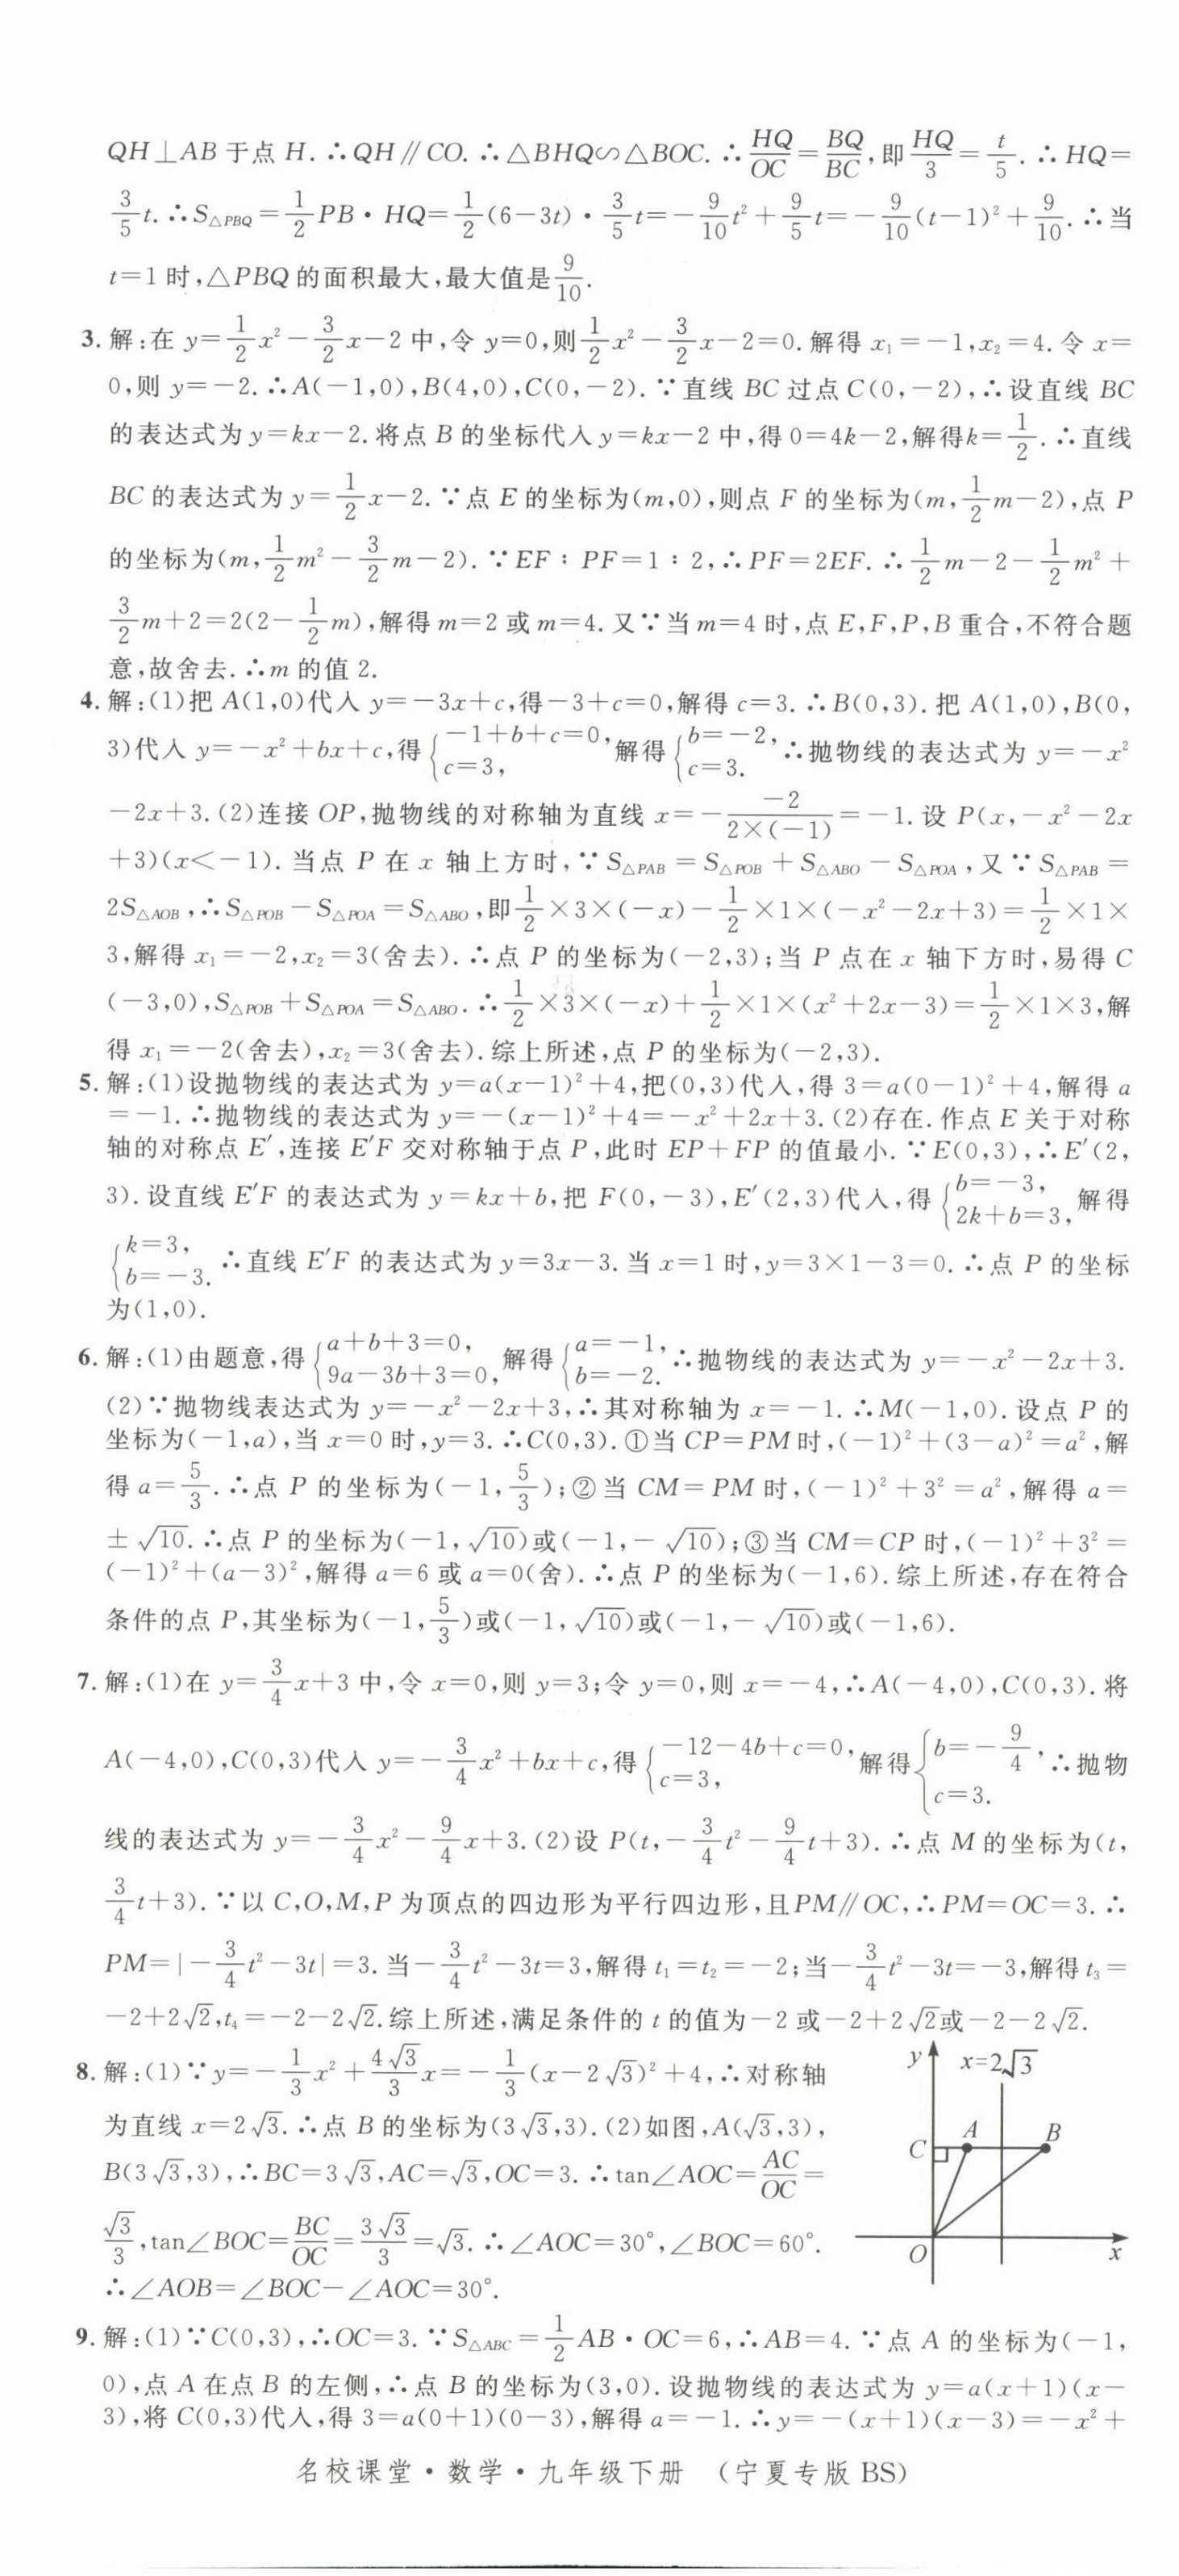 QH⊥AB于点 H. ∴QH∥CO. ∴△BHQ∽△BOC. ∴HQ/OC=BQ/BC,即HQ/3=t/5. ∴HQ=
3/5t. ∴S△PBQ=1/2PB·HQ=1/2(6-3t)·3/5t=-9/10t²+9/5t=-9/10(t-1)²+9/10. ∴当
t=1时,△PBQ的面积最大,最大值是9/10.
3. 解:在 y=1/2x²-3/2x-2中,令 y=0,则1/2x²-3/2x-2=0. 解得 x₁=-1,x₂=4. 令 x=
0,则 y=-2. ∴A(-1,0),B(4,0),C(0,-2). ∵直线 BC 过点 C(0,-2),∴设直线 BC
的表达式为 y=kx-2. 将点 B 的坐标代入 y=kx-2中,得 0=4k-2,解得k=1/2. ∴直线
BC的表达式为 y=1/2x-2. ∵点 E 的坐标为(m,0),则点 F 的坐标为(m,1/2m-2),点 P
的坐标为(m,1/2m²-3/2m-2). ∵EF∶PF=1∶2,∴PF=2EF. ∴1/2m-2-1/2m²+
3/2m+2=2(2-1/2m),解得 m=2 或 m=4. 又∵当 m=4 时,点 E,F,P,B 重合,不符合题
意,故舍去. ∴m 的值 2.
4. 解:(1)把 A(1,0)代入 y=-3x+c,得-3+c=0,解得 c=3. ∴B(0,3). 把 A(1,0),B(0,
3)代入 y=-x²+bx+c,得{-1+b+c=0, c=3, 解得{b=-2, c=3. ∴抛物线的表达式为 y=-x²
-2x+3. (2)连接 OP,抛物线的对称轴为直线 x=--2/2×(-1)=-1. 设 P(x,-x²-2x
+3)(x<-1). 当点 P 在 x 轴上方时,∵S△PAB=S△POB+S△ABO-S△POA,又∵S△PAB=
2S△AOB,∴S△POB-S△POA=S△ABO,即1/2×3×(-x)-1/2×1×(-x²-2x+3)=1/2×1×
3,解得 x₁=-2,x₂=3(舍去). ∴点 P 的坐标为(-2,3);当 P 点在 x 轴下方时,易得 C
(-3,0),S△POB+S△POA=S△ABO. ∴1/2×3×(-x)+1/2×1×(x²+2x-3)=1/2×1×3,解
得 x₁=-2(舍去),x₂=3(舍去). 综上所述,点 P 的坐标为(-2,3).
5. 解:(1)设抛物线的表达式为 y=a(x-1)²+4,把(0,3)代入,得 3=a(0-1)²+4,解得 a
=-1. ∴抛物线的表达式为 y=-(x-1)²+4=-x²+2x+3. (2)存在. 作点 E 关于对称
轴的对称点 E′,连接 E′F 交对称轴于点 P,此时 EP+FP 的值最小. ∵E(0,3),∴E′(2,
3). 设直线 E′F 的表达式为 y=kx+b,把 F(0,-3),E′(2,3)代入,得{b=-3, 2k+b=3, 解得
{k=3, b=-3. ∴直线 E′F 的表达式为 y=3x-3. 当 x=1 时,y=3×1-3=0. ∴点 P 的坐标
为(1,0).
6. 解:(1)由题意,得{a+b+3=0, 9a-3b+3=0, 解得{a=-1, b=-2. ∴抛物线的表达式为 y=-x²-2x+3.
(2)∵抛物线表达式为 y=-x²-2x+3,∴其对称轴为 x=-1. ∴M(-1,0). 设点 P 的
坐标为(-1,a),当 x=0 时,y=3. ∴C(0,3). ①当 CP=PM 时,(-1)²+(3-a)²=a²,解
得 a=5/3. ∴点 P 的坐标为(-1,5/3);②当 CM=PM 时,(-1)²+3²=a²,解得 a=
±√10. ∴点 P 的坐标为(-1,√10)或(-1,-√10);③当 CM=CP 时,(-1)²+3²=
(-1)²+(a-3)²,解得 a=6 或 a=0(舍). ∴点 P 的坐标为(-1,6). 综上所述,存在符合
条件的点 P,其坐标为(-1,5/3)或(-1,√10)或(-1,-√10)或(-1,6).
7. 解:(1)在 y=3/4x+3 中,令 x=0,则 y=3;令 y=0,则 x=-4,∴A(-4,0),C(0,3). 将
A(-4,0),C(0,3)代入 y=-3/4x²+bx+c,得{-12-4b+c=0, c=3, 解得{b=-9/4, c=3. ∴抛物
线的表达式为 y=-3/4x²-9/4x+3. (2)设 P(t,-3/4t²-9/4t+3). ∴点 M 的坐标为(t,
3/4t+3). ∵以 C,O,M,P 为顶点的四边形为平行四边形,且PM∥OC,∴PM=OC=3. ∴
PM=|-3/4t²-3t|=3. 当-3/4t²-3t=3,解得 t₁=t₂=-2;当-3/4t²-3t=-3,解得 t₃=
-2+2√2,t₄=-2-2√2. 综上所述,满足条件的 t 的值为-2 或-2+2√2或-2-2√2.
8. 解:(1)∵y=-1/3x²+4√3/3x=-1/3(x-2√3)²+4,∴对称轴
为直线 x=2√3. ∴点 B 的坐标为(3√3,3). (2)如图,A(√3,3),
B(3√3,3),∴BC=3√3,AC=√3,OC=3. ∴tan∠AOC=AC/OC=
√3/3,tan∠BOC=BC/OC=3√3/3=√3. ∴∠AOC=30°,∠BOC=60°.
∴∠AOB=∠BOC-∠AOC=30°.
y x=2√3
C A B
O x
9. 解:(1)∵C(0,3),∴OC=3. ∵S△ABC=1/2AB·OC=6,∴AB=4. ∵点 A 的坐标为(-1,
0),点 A 在点 B 的左侧,∴点 B 的坐标为(3,0). 设抛物线的表达式为 y=a(x+1)(x-
3),将 C(0,3)代入,得 3=a(0+1)(0-3),解得 a=-1. ∴y=-(x+1)(x-3)=-x²+
名校课堂·数学·九年级下册 (宁夏专版 BS)